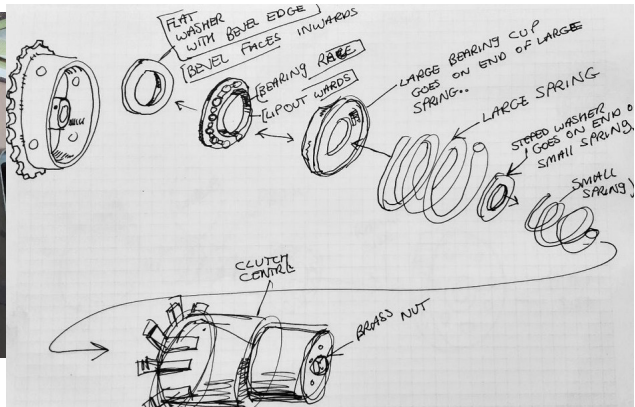 FLAT
WASHER
WITH BEVEL EDGE
BEVEL FACES INWARDS
BEARING RACE
LIP OUT WARDS
LARGE BEARING CUP
GOES ON END OF LARGE
SPRING..
LARGE SPRING
STEPED WASHER
GOES ON END O
SMALL SPRING
SMALL
SPRING
CLUTCH
CENTRE
BRASS NUT